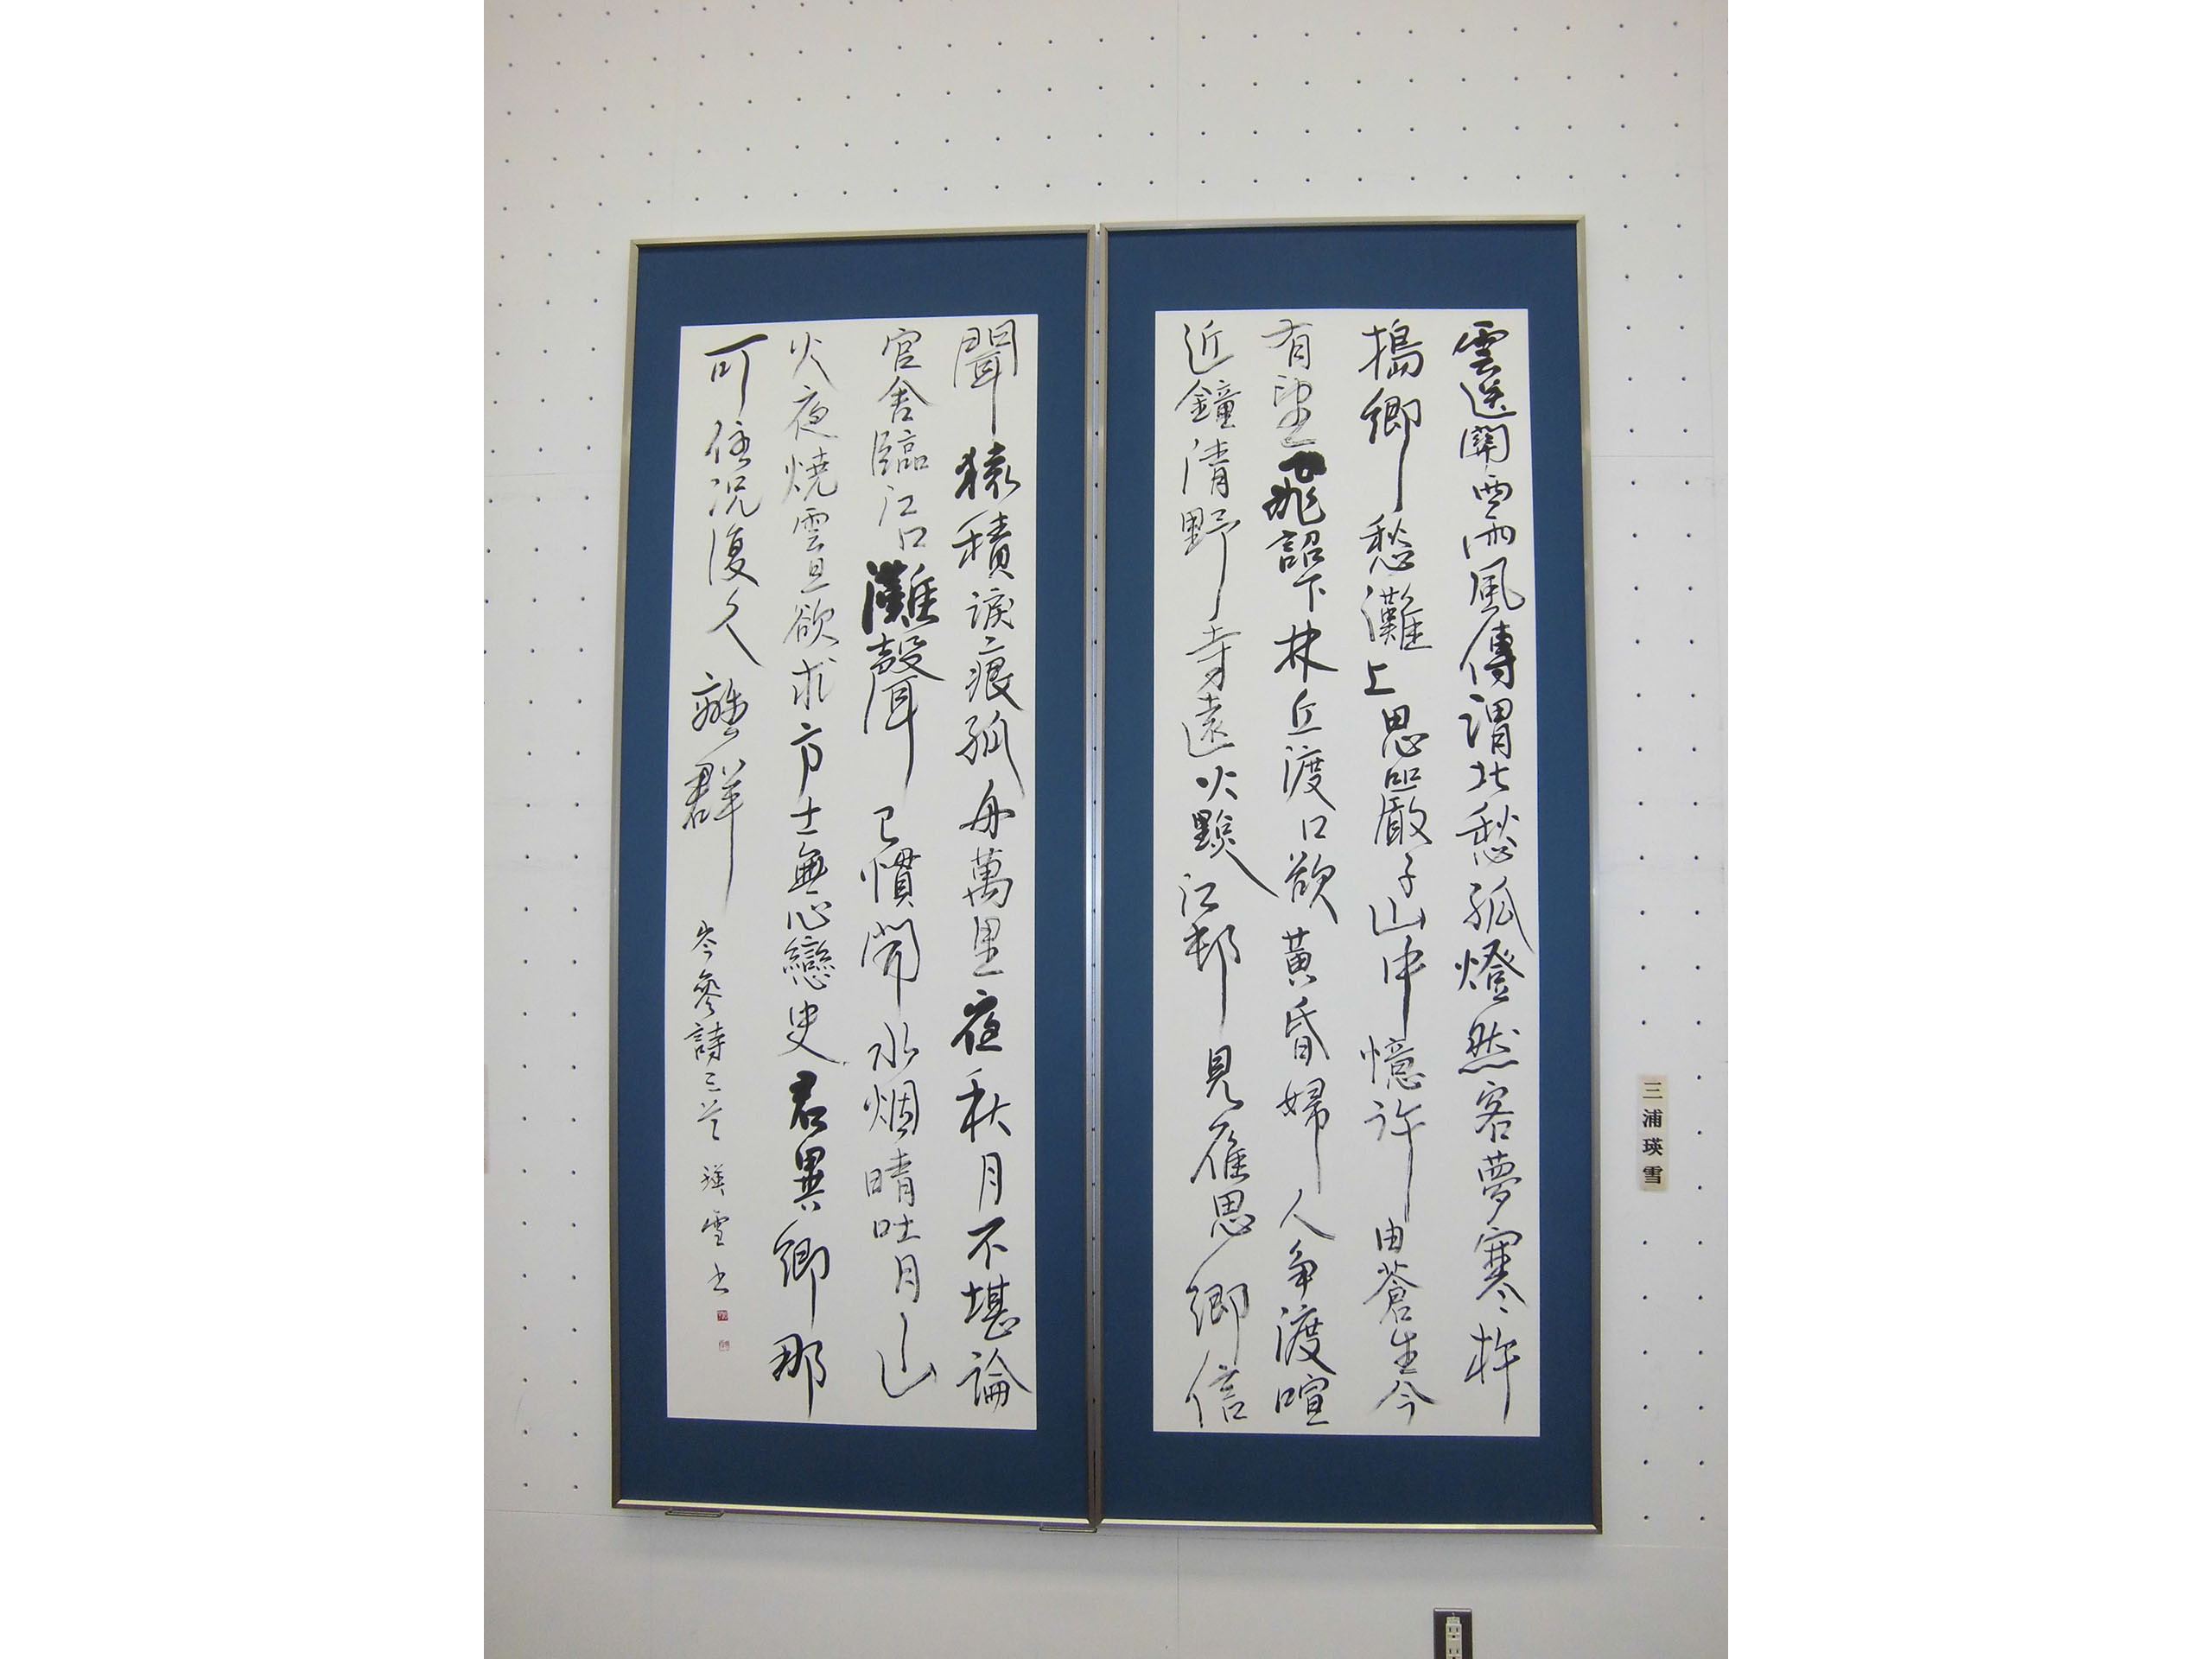 雲送關西雨風傳渭北愁孤燈然客夢寒杵
搗鄉愁灘上思嚴子山中憶許由蒼生今
有望飛詔下林丘渡口欲黃昏歸人爭渡喧
近鐘清野寺遠火點江邨見雁思鄉信
聞猿積淚痕孤舟萬里夜秋月不堪論
官舍臨江口灘聲已慣聞水烟晴吐月山
火夜燒雲且欲求方士無心戀史君異鄉那
可住況復久離群
岑參詩三首 瑛雪書
三浦瑛雪